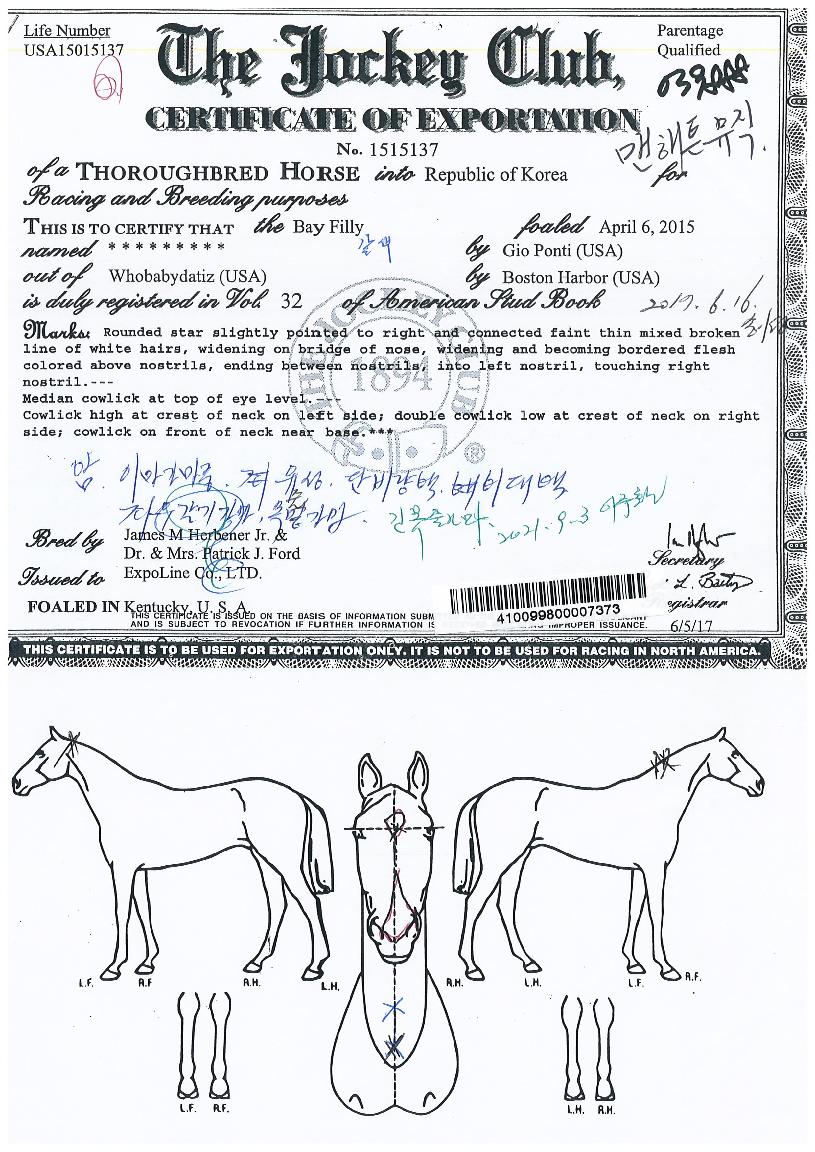 Life Number
USA15015137
The Jockey Club,
Parentage
Qualified
CERTIFICATE OF EXPORTATION
맨해튼뮤직.
No. 1515137
of a THOROUGHBRED HORSE into Republic of Korea for
Racing and Breeding purposes
THIS IS TO CERTIFY THAT the Bay Filly foaled April 6, 2015
갈색
named * * * * * * * * * by Gio Ponti (USA)
out of Whobabydatiz (USA) by Boston Harbor (USA)
is duly registered in Vol. 32 of American Stud Book
2017. 6. 16.
THE JOCKEY CLUB
1894
®
Marks: Rounded star slightly pointed to right and connected faint thin mixed broken
line of white hairs, widening on bridge of nose, widening and becoming bordered flesh
colored above nostrils, ending between nostrils, into left nostril, touching right
nostril.---
Median cowlick at top of eye level.---
Cowlick high at crest of neck on left side; double cowlick low at crest of neck on right
side; cowlick on front of neck near base.***
2021. 9. 3
Bred by James M Herbener Jr. &
Dr. & Mrs. Patrick J. Ford
Secretary
Issued to ExpoLine Co., LTD.
egistrar
FOALED IN Kentucky, U. S. A.
6/5/17
410099800007373
THIS CERTIFICATE IS ISSUED ON THE BASIS OF INFORMATION SUBM
AND IS SUBJECT TO REVOCATION IF FURTHER INFORMATION IS
IMPROPER ISSUANCE.
THIS CERTIFICATE IS TO BE USED FOR EXPORTATION ONLY. IT IS NOT TO BE USED FOR RACING IN NORTH AMERICA.
L.F. R.F R.H. L.H. R.H. L.H. L.F. R.F.
L.F. R.F. L.H. R.H.